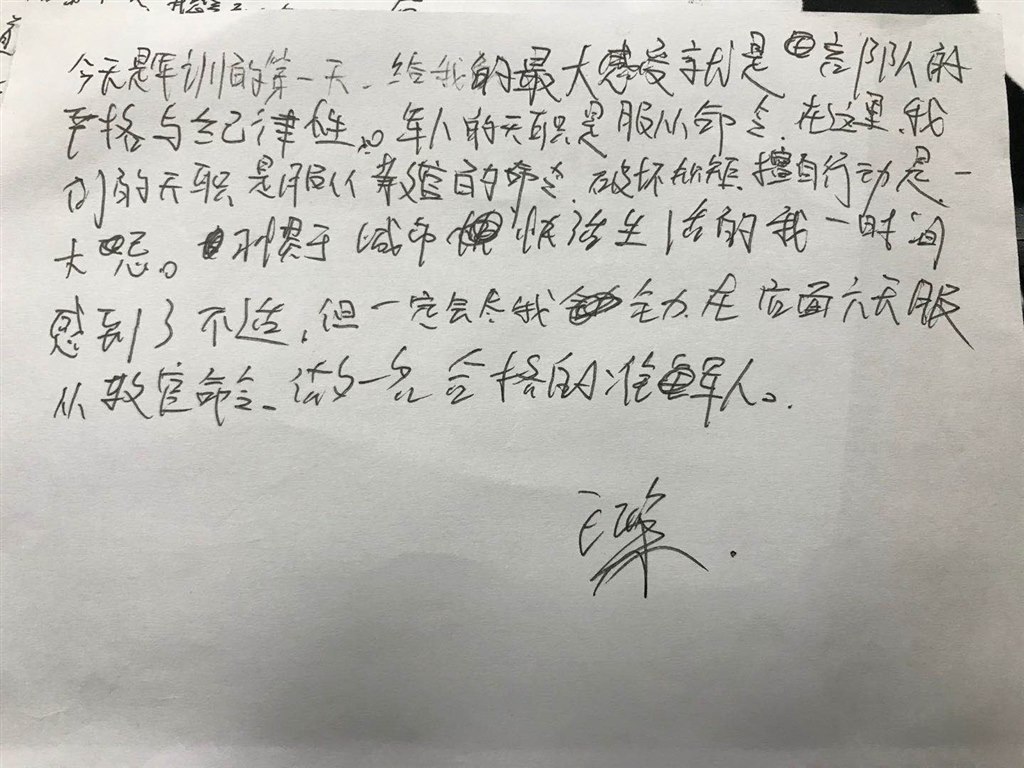 今天是军训的第一天、给我的最大感受就是部队的
严格与纪律性。军人的天职是服从命令.在这里,我
们的天职是服从教官的命令.破坏规矩.擅自行动是一
大忌。习惯于城市快活生活的我一时间
感到了不适,但一定会尽我全力在后面六天服
从教官命令、做一名合格的准军人。